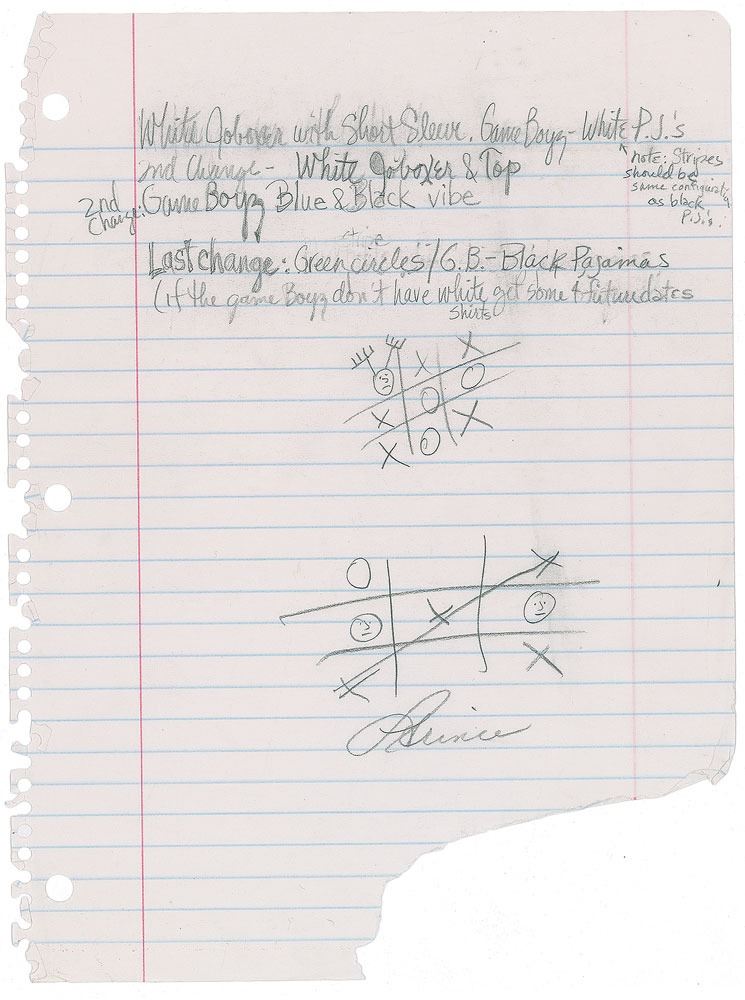 White Goboxer with Short Sleeve. Game Boyz - White P.J.'s
note: Stripes
should be
same configuration
as black
P.J.'s.
2nd Change - White Goboxer & Top
2nd Change: Game Boyz Blue & Black vibe
Last change: Green circles / G.B. - Black Pajamas
(if the game Boyz don't have white get some 4 future dates
Shirts
X X
O
X O X
X O
O X
X
X X
Prince